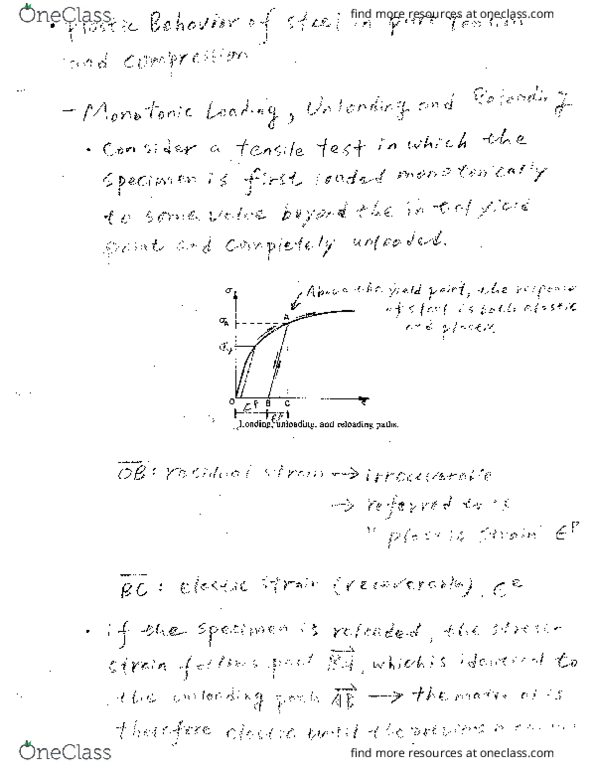 OneClass
find more resources at oneclass.com
• Plastic Behavior of steel in pure tension
and compression
- Monotonic Loading, Unloading and Reloading
• Consider a tensile test in which the
specimen is first loaded monotonically
to some value beyond the initial yield
point and completely unloaded.
Above the yield point, the response
of steel is both elastic
and plastic
A
O B C
Loading, unloading, and reloading paths.
OB: residual strain → irrecoverable
→ referred to as
"plastic strain" ϵᵖ
BC: elastic strain (recoverable), ϵᵉ
• if the specimen is reloaded, the stress-
strain follows path BA, which is identical to
the unloading path AB → the material is
therefore elastic until the previous
OneClass
find more resources at oneclass.com